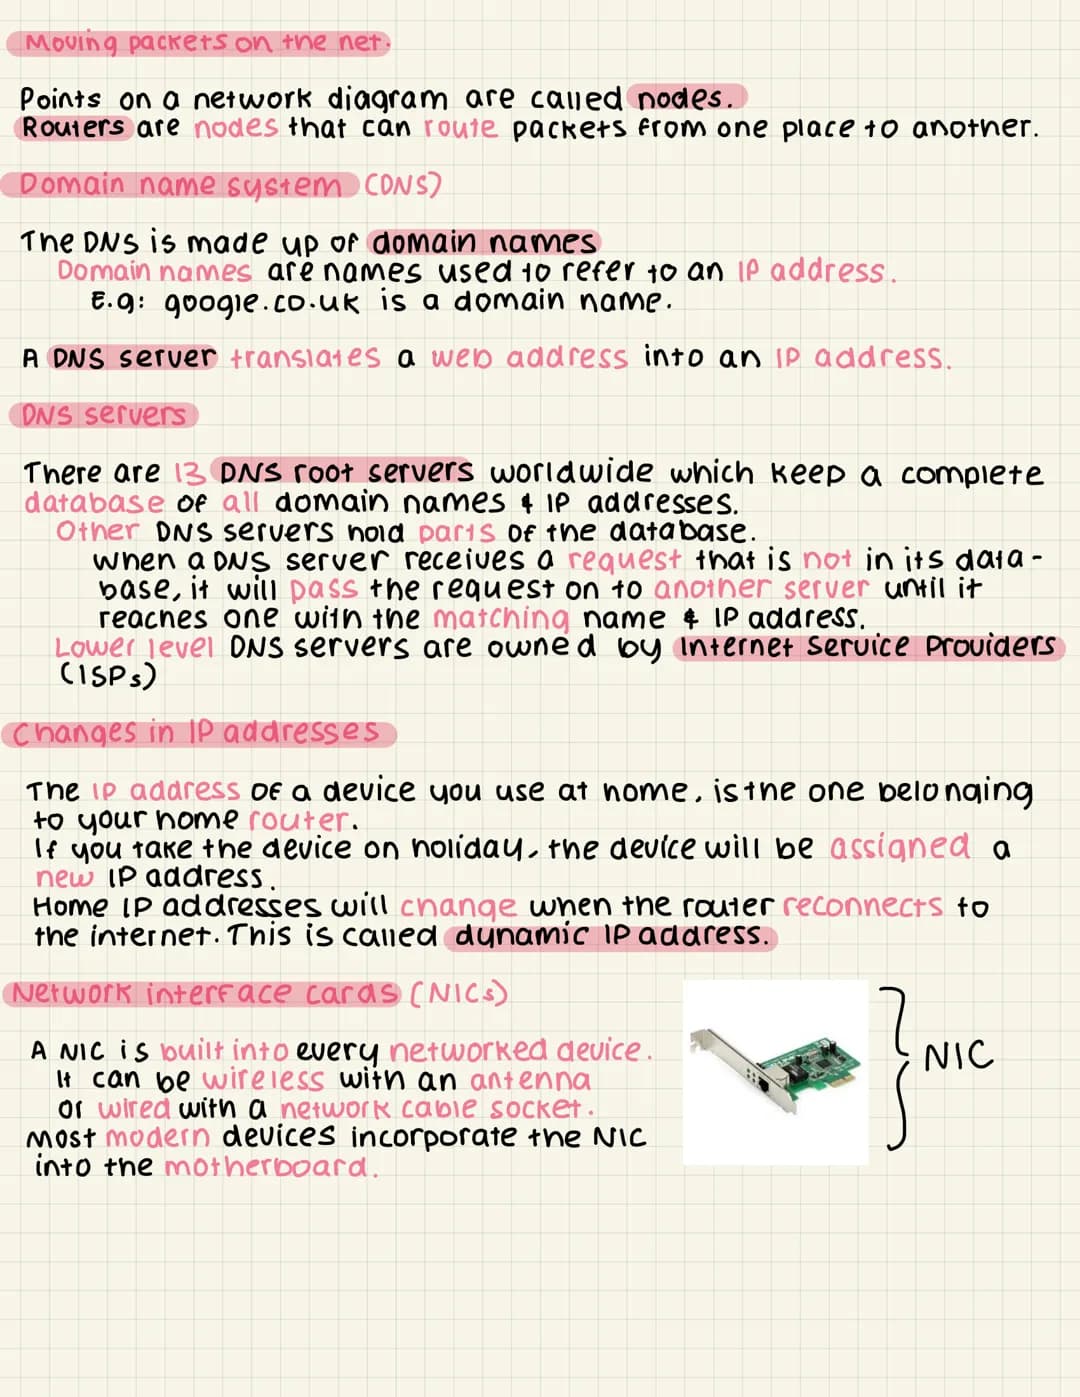 Moving packets on the net.
Points on a network diagram are called nodes.
Routers are nodes that can route packets from one place to another.
Domain name system (DNS)
The DNS is made up of domain names
Domain names are names used to refer to an IP address.
E.g: google.co.uk is a domain name.
A DNS server translates a web address into an IP address.
DNS servers
There are 13 DNS root servers worldwide which keep a complete
database of all domain names & IP addresses.
Other DNS servers hold parts of the database.
When a DNS server receives a request that is not in its data-
base, it will pass the request on to another server until it
reaches one with the matching name & IP address.
Lower level DNS servers are owned by Internet Service Providers
(ISPs)
Changes in IP addresses
The IP address of a device you use at home, is the one belonging
to your home router.
If you take the device on holiday, the device will be assigned a
new IP address.
Home IP addresses will change when the router reconnects to
the internet. This is called dynamic IP address.
Network interface cards (NICs)
A NIC is built into every networked device.
It can be wireless with an antenna
or wired with a network cable socket.
Most modern devices incorporate the NIC
into the motherboard.
NIC